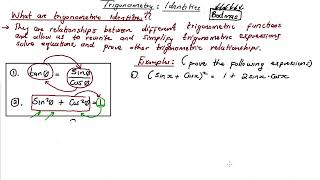 Trigonometric Identities
Bodmas
What are trigonometric identities??
They are relationships between different trigonometric functions
and allow us to rewrite and simplify trigonometric expressions
solve equations and prove other trigonometric relationships.
Example: (prove the following expressions)
①. tanθ = sinθ/cosθ
②. Sin²θ + Cos²θ = 1
①. (Sinx + Cosx)² = 1 + 2sinx·cosx